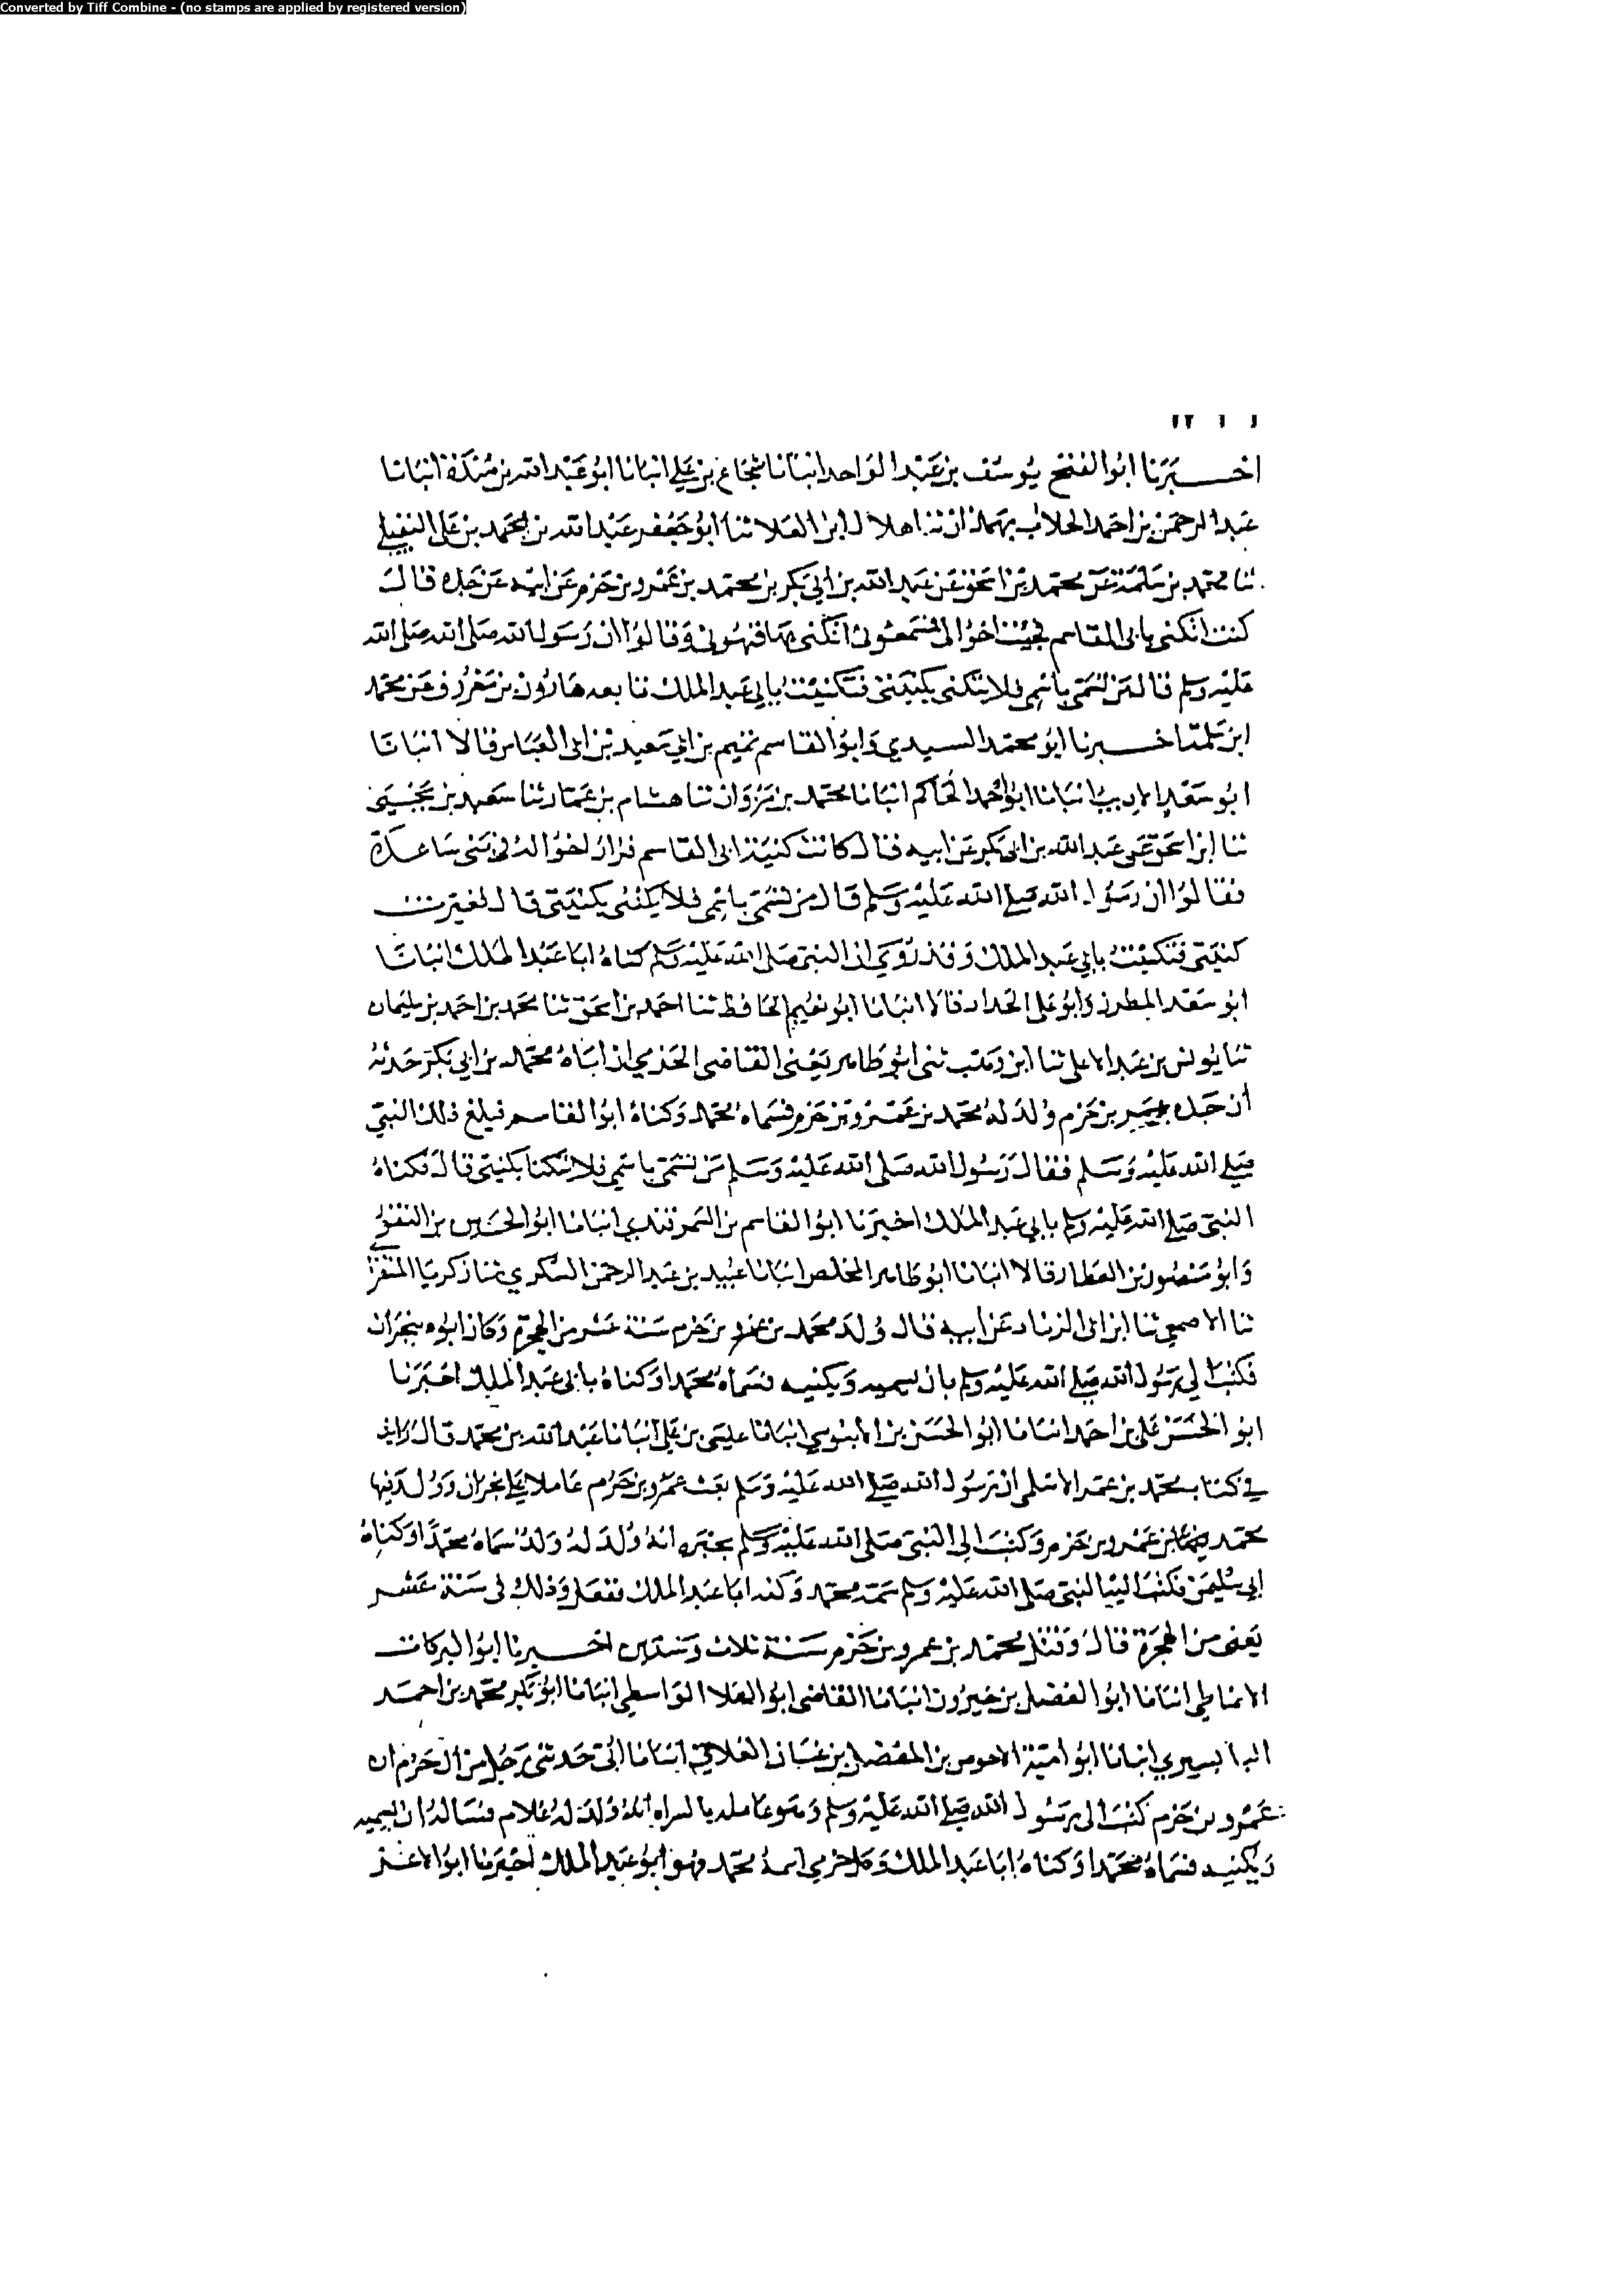 Converted by Tiff Combine - (no stamps are applied by registered version)
اخبرنا ابوا الفتح يوسف بن عبد الواحد انبانا شجاع بن علي انبانا ابو عبد الله بن مندة انبانا
عبد الرحمن بن احمد الجلاب بهمذان ثنا هلال ابن العلا ثنا ابو جعفر عبد الله بن محمد بن علي النفيلي
ثنا محمد بن سلمة عن محمد بن اسحق عن عبد الله بن ابي بكر بن محمد بن عمرو بن حزم عن ابيه عن جده قال
كنت اتكنى بابي القاسم فجيت اخوالي فسمعوني اتكنى بها فنهوني وقالوا ان رسول الله صلى الله صلى الله
عليه وسلم قال من تسمى باسمي فلا يتكنى بكنيتي فتكنيت بابي عبد الملك تابعه هارون بن معروف عن محمد
ابن سلمة اخبرنا ابو محمد السيدي وابوا القاسم تميم بن ابي سعيد بن ابي العباس قالا انبانا
ابو سعد الاديب انبانا ابوا احمد الحاكم انبانا محمد بن مروان ثنا هشام بن عمار ثنا سعيد بن يحيى
ثنا ابن اسحق عن عبد الله بن ابي بكر عن ابيه قال كانت كنيته ابي القاسم فزار اخوا له في بني ساعدة
فقالوا ان رسول الله صلى الله عليه وسلم قال من تسمى باسمي فلا يكنى بكنيتي قال فغيرت
كنيتي فتكنيت بابي عبد الملك وقد روي ان النبي صلى الله عليه وسلم كناه ابا عبد الملك انبانا
ابو سعد المطرز وابو علي الحداد قالا انبانا ابو نعيم الحافظ ثنا احمد بن اسحق ثنا محمد بن احمد بن سليمان
ثنا يونس بن عبد الاعلى ثنا ابن وهب ثني ابو طاهر يعني القاضي الحزمي ان اباه محمد بن ابي بكر حدثه
ان جده بن حزم ولد له محمد بن عمرو بن حزم فسماه محمد وكناه ابوا القاسم فبلغ ذلك النبي
صلى الله عليه وسلم فقال رسول الله صلى الله عليه وسلم من تسمى باسمي فلا يتكنا بكنيتي قال فكناه
النبي صلى الله عليه وسلم بابي عبد الملك اخبرنا ابوا القاسم بن السمرقندي انبانا ابوا الحسين بن النقور
وابو منصور بن العطار قالا انبانا ابو طاهر المخلص انبانا عبيد بن عبد الرحمن السكري ثنا زكريا المنقري
ثنا الاصمعي ثنا ابن ابي الزناد عن ابيه قال ولد محمد بن عمرو بن حزم سنة عشر من الهجرة وكان ابوه بنجران
فكتب الي رسول الله صلى الله عليه وسلم بان يسميه ويكنيه فسماه محمدا وكناه بابي عبد الملك اخبرنا
ابو الحسن علي بن احمد انبانا ابوا الحسن بن الابنوسي انبانا عيسى بن علي انبانا عبد الله بن محمد قال رايت
في كتاب محمد بن عمر الاسلمي ان رسول الله صلى الله عليه وسلم بعث عمرو بن حزم عاملا على نجران وولد فيها
محمد بن عمرو بن حزم وكتب الى النبي صلى الله عليه وسلم يخبره انه ولد له ولد سماه محمدا وكناه
ابي سليمن فكتب اليه النبي صلى الله عليه وسلم سمه محمد وكنه ابا عبد الملك ففعل وذلك في سنة عشر
يعني من الهجرة قال وقتل محمد بن عمرو بن حزم سنة ثلاث وستين اخبرنا ابوا البركات
الانماطي انبانا ابوا الفضل بن خيرون انبانا القاضي ابوا العلا الواسطي انبانا ابو بكر محمد بن احمد
البابسيري انبانا ابو امية الاحوص بن المفضل بن غسان الغلابي انبانا ابي حدثني رجل من ال حزم ان
عمرو بن حزم كتب الى رسول الله صلى الله عليه وسلم وهو عامله انه ولد له غلام فساله ان يسميه
ويكنيه فسماه محمدا وكناه ابا عبد الملك وكل حزمي اسمه محمد فهو ابو عبد الملك اخبرنا ابوا الاعز